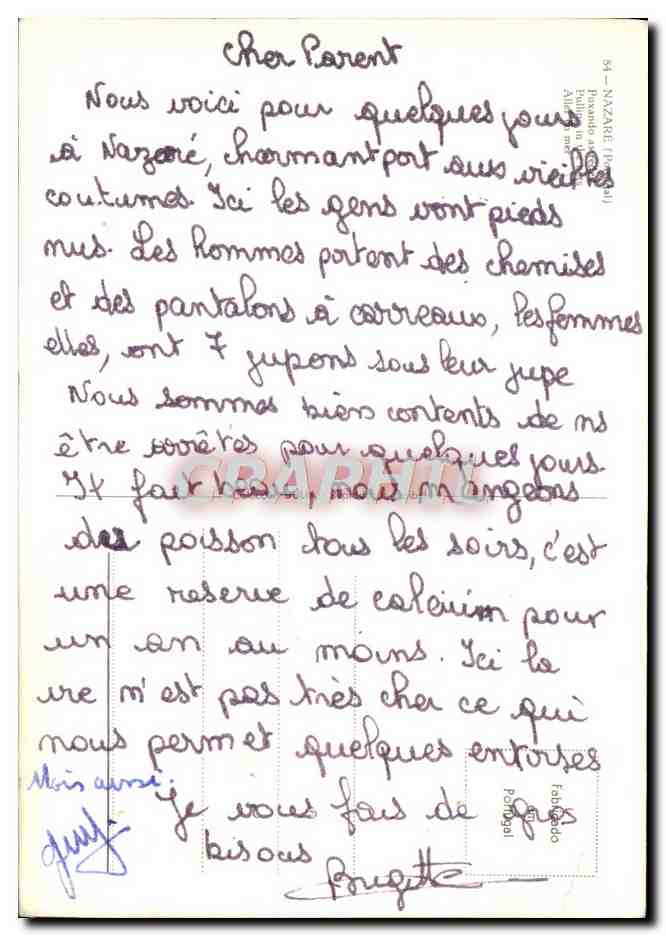 Cher Parent
Nous voici pour quelques jours
à Nazaré, charmant port aux vieilles
coutumes. Ici les gens vont pieds
nus. Les hommes portent des chemises
et des pantalons à carreaux, les femmes
elles, ont 7 jupons sous leur jupe
Nous sommes bien contents de ns
être arrêtés pour quelques jours.
Il fait beau, nous mangeons
des poisson tous les soirs, c'est
une reserve de calcium pour
un an au moins. Ici la
vie n'est pas très cher ce qui
nous permet quelques entorses
Je vous fais de gros
bisous
Brigitte
Mois aussi.
Guy
84 - NAZARÉ (Portugal)
Puxando
Pulling
CRAPHIL
Fabricado
Portugal